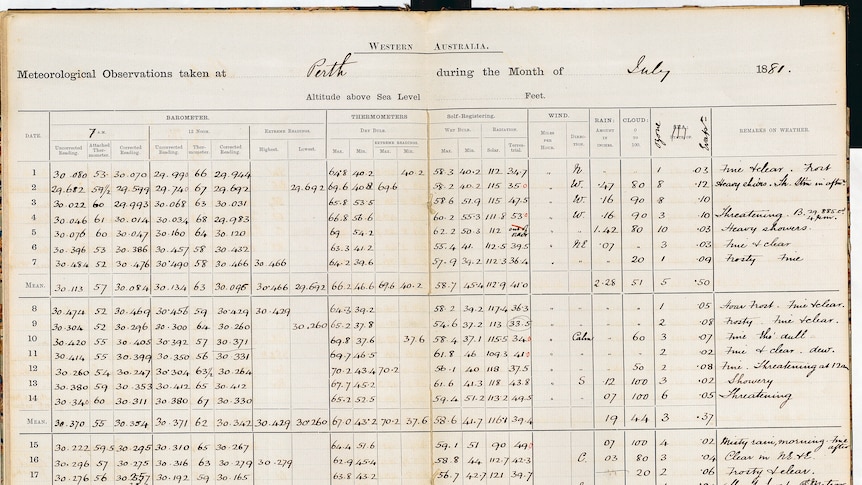 WESTERN AUSTRALIA.
Meteorological Observations taken at Perth during the Month of July 1881.
Altitude above Sea Level Feet.
BAROMETER. THERMOMETERS Self-Registering. WIND. RAIN: CLOUD: Ozone
DATE. 7 A.M. 12 NOON. EXTREME READINGS. DRY BULB. WET BULB. RADIATION. MILES PER HOUR. DIRECTION. AMOUNT IN INCHES. 0 TO 100. REMARKS ON WEATHER.
Uncorrected Reading. Attached Thermometer. Corrected Reading. Uncorrected Reading. Thermometer. Corrected Reading. Highest. Lowest. Max. Min. EXTREME READINGS Max. Min. Max. Min. Solar. Terrestrial.
1 30.080 53 30.070 29.990 66 29.944 64.8 40.2 40.2 58.3 40.2 112 34.7 " N 1 .03 Fine & clear. Frost
2 29.682 59/2 29.599 29.740 67 29.692 29.692 69.6 40.8 69.6 58.2 40.2 115 35.0 " W. .47 80 8 .12 Heavy shors.
3 30.022 60 29.993 30.068 63 30.031 65.8 53.5 58.6 51.9 115 47.5 " W. .16 90 8 .10
4 30.046 61 30.014 30.034 68 29.983 66.8 56.6 60.2 55.3 111.8 53.0 " W .16 90 3 .10 Threatening. B. 29.885 at 4 p.m.
5 30.076 60 30.047 30.160 64 30.120 69 54.2 62.2 50.3 112 " 1.42 80 10 .03 Heavy showers.
6 30.396 53 30.386 30.457 58 30.432 63.3 41.2 55.4 41. 112.5 39.5 " NE .07 3 .03 Fine & clear
7 30.484 52 30.476 30.490 58 30.466 30.466 64.2 39.6 57.9 39.2 112.3 36.4 " 20 1 .09 Frosty Fine
MEAN. 30.113 57 30.084 30.134 63 30.095 30.466 29.692 66.2 46.6 69.6 40.2 58.7 45.4 112.9 41.0 2.28 51 5 .50
8 30.474 52 30.469 30.456 59 30.429 30.429 64.3 39.2 58.2 39.2 117.4 36.3 " 1 .05 Hoar Frost. Fine & clear.
9 30.304 52 30.296 30.300 64 30.260 30.260 65.2 37.8 54.6 37.2 113 33.5 " 2 .08 Frosty. Fine & clear.
10 30.420 55 30.405 30.392 57 30.371 69.8 37.6 37.6 58.4 37.1 115.5 34.0 " Calm 60 3 .07 Fine tho' dull.
11 30.414 55 30.399 30.350 56 30.331 69.7 46.5 61.8 46 109.3 41.0 " 2 .02 Fine & clear. dew.
12 30.260 54 30.247 30.304 63/2 30.264 70.2 43.4 70.2 56.1 40 118 37.5 " 50 2 .08 Fine. Threatening at 12am
13 30.380 59 30.353 30.412 65 30.412 67.7 45.2 61.6 41.3 118 43.8 " S .12 100 3 .02 Showery
14 30.340 60 30.311 30.380 67 30.330 65.2 52.5 59.4 51.2 113.2 49.5 " .07 100 6 .05 Threatening
MEAN. 30.370 55 30.354 30.371 62 30.342 30.429 30.260 67.0 43.2 70.2 37.6 58.6 41.7 116.1 39.4 19 44 3 .37
15 30.222 59.5 30.295 30.310 65 30.267 64.4 51.6 59.1 51 90 49.0 07 100 4 .02 Misty rain, morning. fine after
16 30.296 57 30.275 30.316 63 30.279 30.279 62.9 45.4 58.8 44 112.7 42.3 " C. 03 80 3 .04 Clear in NE & E.
17 30.276 56 30.257 30.192 59 30.165 63.8 43.2 56.7 42.7 121 39.7 20 2 .06 Frosty & clear.